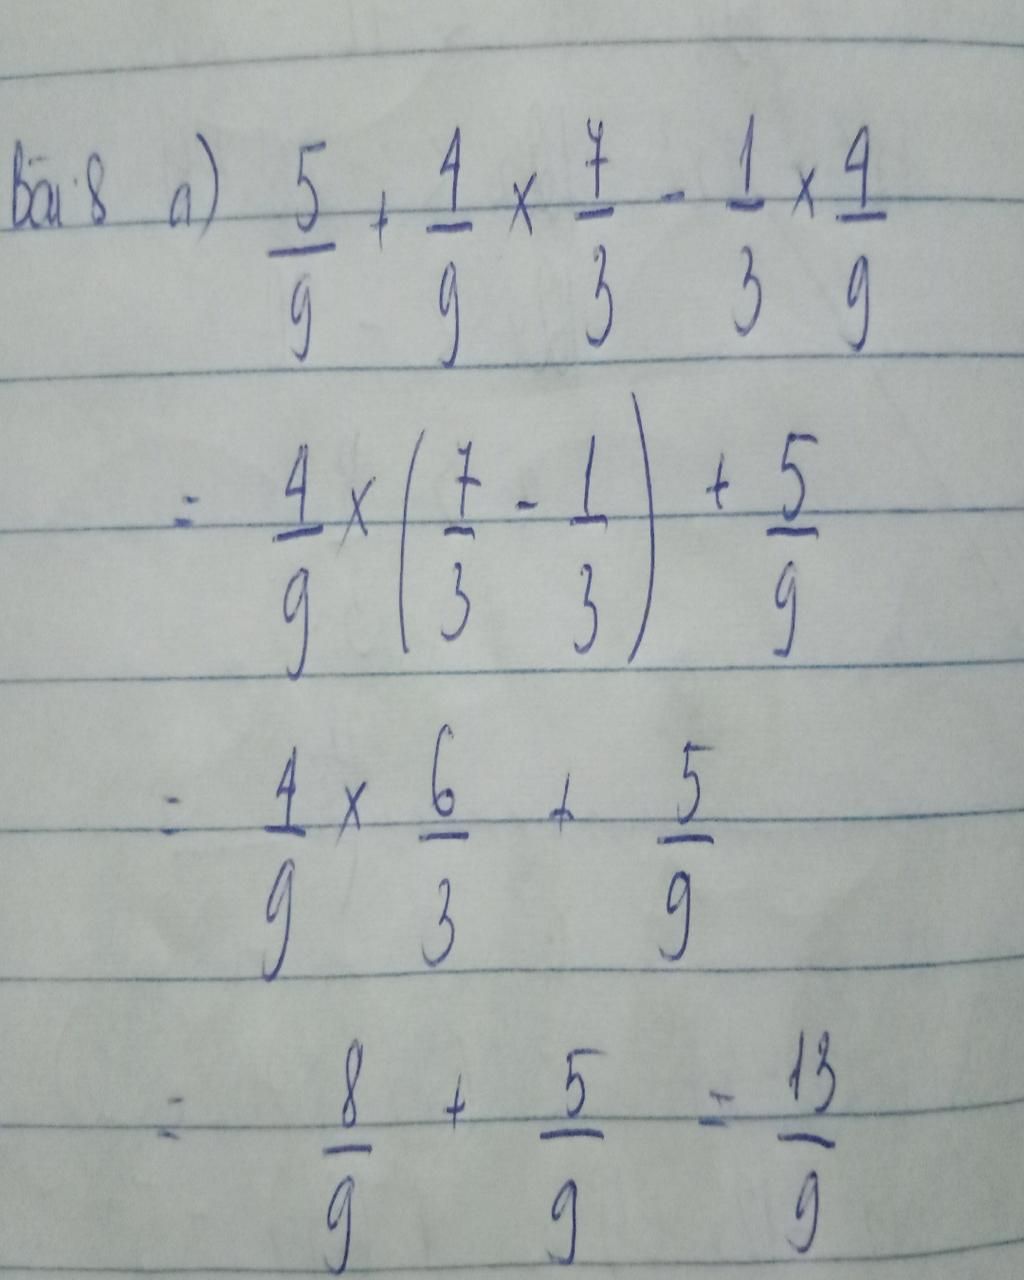 Bài 8 a) 5/9 + 4/9 × 7/3 - 1/3 × 4/9
= 4/9 × (7/3 - 1/3) + 5/9
= 4/9 × 6/3 + 5/9
= 8/9 + 5/9 = 13/9